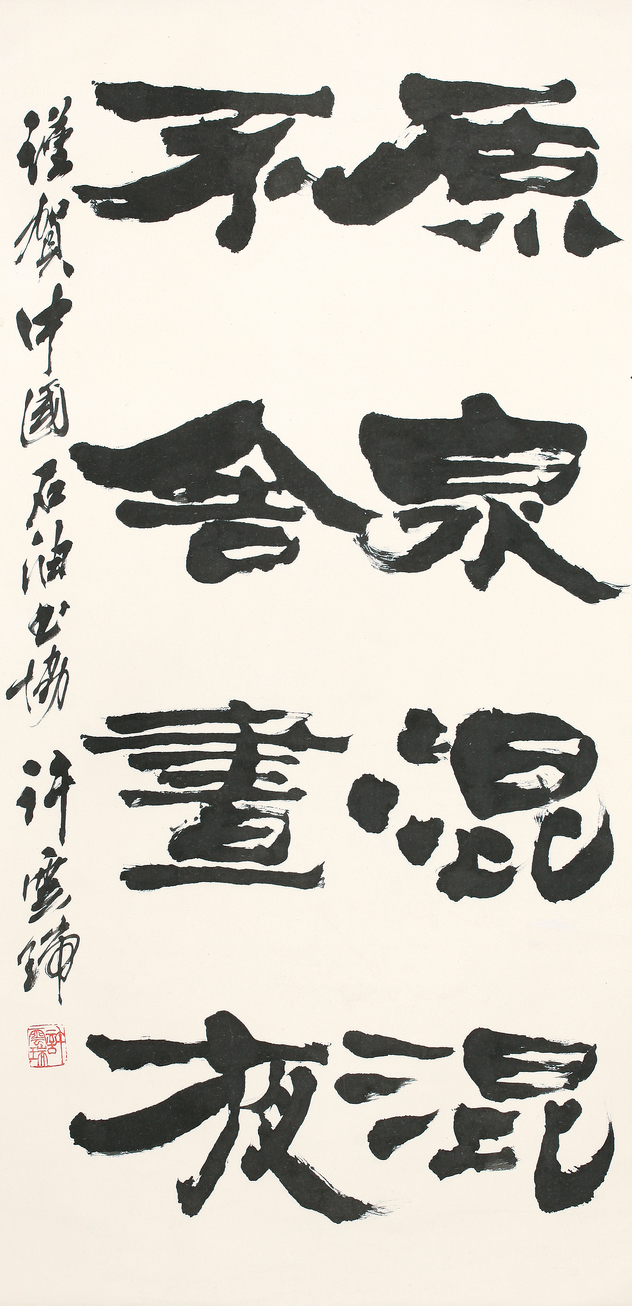 原泉混混
不舍晝夜
謹賀中國石油书協 許雲瑞
許雲瑞